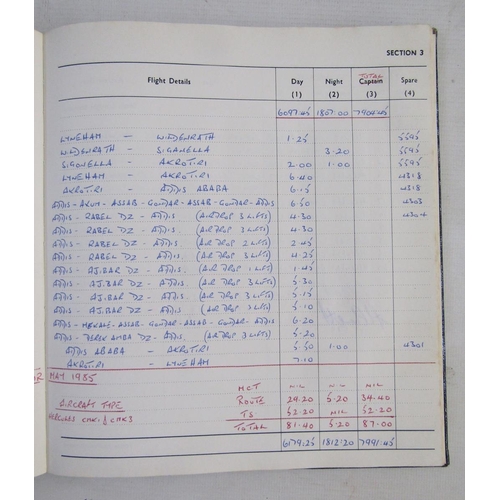 SECTION 3
Flight Details Day (1) Night (2) TOTAL Captain (3) Spare (4)
6097.45 1807.00 7904.45
LYNEHAM - WILDENRATH 1.25 5595
WILDENRATH - SIGONELLA 3.20 5595
SIGONELLA - AKROTIRI 2.00 1.00 5595
LYNEHAM - AKROTIRI 6.40 4318
AKROTIRI - ADDIS ABABA 6.15 4318
ADDIS - AXUM - ASSAB - GONDAR - ASSAB - GONDAR - ADDIS 6.50 4303
ADDIS - RABEL DZ - ADDIS (AIR DROP 3 LIFTS) 4.30 4304
ADDIS - RABEL DZ - ADDIS (AIR DROP 3 LIFTS) 4.30
ADDIS - RABEL DZ - ADDIS (AIR DROP 2 LIFTS) 2.45
ADDIS - RABEL DZ - ADDIS (AIR DROP 3 LIFTS) 4.25
ADDIS - AJ.BAR DZ - ADDIS (AIR DROP 1 LIFTS) 1.45
ADDIS - AJ.BAR DZ - ADDIS (AIR DROP 3 LIFTS) 5.30
ADDIS - AJ.BAR DZ - ADDIS (AIR DROP 3 LIFTS) 5.15
ADDIS - AJ.BAR DZ - ADDIS (AIR DROP 3 LIFTS) 5.10
ADDIS - MEKALE - ASSAB - GONDAR - ASSAB - GONDAR - ADDIS 6.20
ADDIS - DEREK AMBA DZ - ADDIS (AIR DROP 3 LIFTS) 5.20
ADDIS ABABA - AKROTIRI 5.50 1.00 4301
AKROTIRI - LYNEHAM 7.10
MAY 1985
MCT NIL NIL NIL
AIRCRAFT TYPE ROUTE 29.20 5.20 34.40
HERCULES CMK1 & CMK3 TS 52.20 NIL 52.20
TOTAL 81.40 5.20 87.00
6179.25 1812.20 7991.45